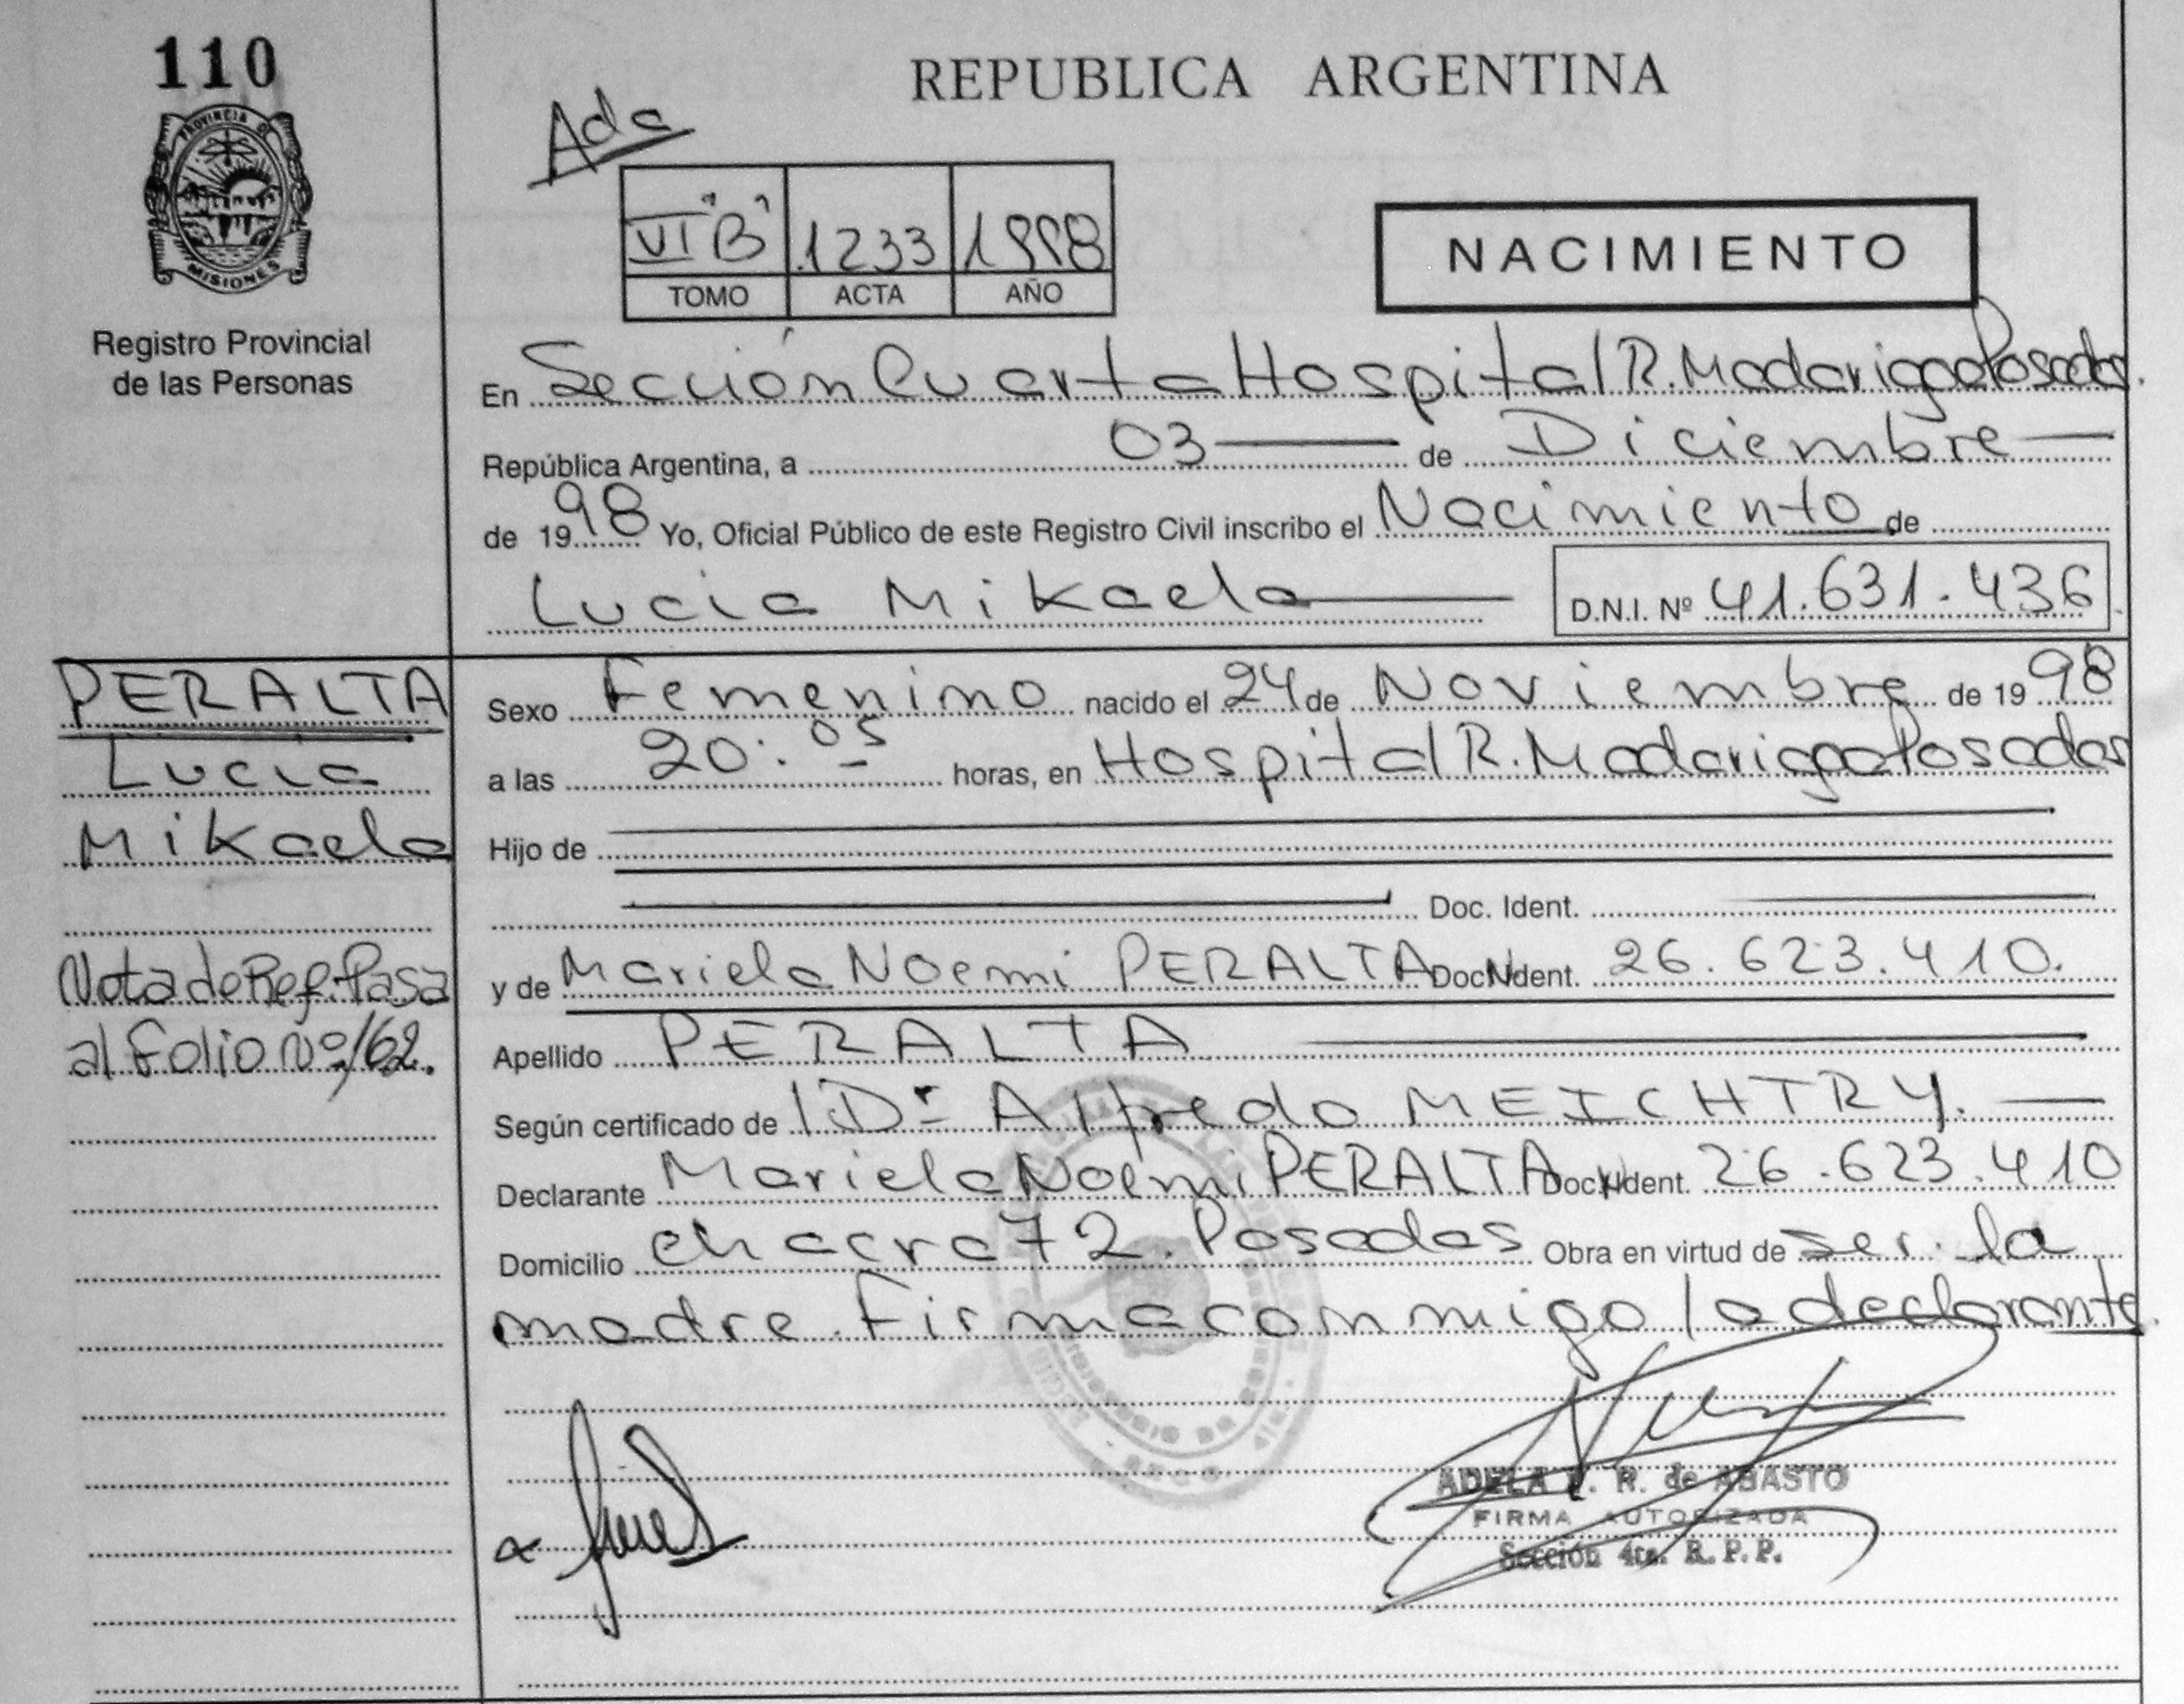 110
PROVINCIA D
MISIONES
Registro Provincial
de las Personas
REPUBLICA ARGENTINA
Ada
VI "B" 1233 1998
TOMO ACTA AÑO
NACIMIENTO
En Sección Cuarta Hospital R. Madariaga Posadas.
República Argentina, a 03 de Diciembre
de 1998 Yo, Oficial Público de este Registro Civil inscribo el Nacimiento de
Lucia Mikaela D.N.I. Nº 41.631.436
PERALTA
Lucia
Mikaela
Nota de Ref. Pasa
al Folio Nº 162.
Sexo Femenino nacido el 24 de Noviembre de 1998
a las 20:05 horas, en Hospital R. Madariaga Posadas
Hijo de
Doc. Ident.
y de Mariela Noemi PERALTA Doc. Ident. 26.623.410.
Apellido PERALTA
Según certificado de Dr Alfredo MEICHTRY.
Declarante Mariela Noemi PERALTA Doc. Ident. 26.623.410
Domicilio chacra 72. Posadas Obra en virtud de ser la
madre. Firma conmigo la declarante.
ADELA R. de ABASTO
FIRMA AUTORIZADA
Sección 4ta. R.P.P.